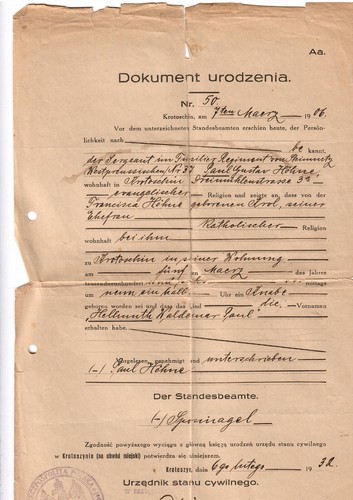 Aa.
Dokument urodzenia.
Nr. 50.
Krotoschin, am 7ten Maerz 1906.
Vor dem unterzeichneten Standesbeamten erschien heute, der Persön-
lichkeit nach be kannt,
der Sergeant im Füsilier Regiment von Steinmetz
Westpreussischen Nr 37 Paul Gustav Höhne,
wohnhaft in Krotoschin
evangelischer Religion und zeigte an, dass von der
Francisca Höhne geborenen Krol, seiner
Ehefrau
Katholischer Religion
wohnhaft bei ihm
zu Krotoschin in seiner Wohnung
am fünf en Maerz des Jahres
tausendneunhundert mittags
um neun ein halb Uhr ein Knabe
geboren worden sei und dass das ind die Vornamen
"Hellmuth Waldemar Paul"
erhalten habe.
Vorgelesen, genehmigt und unterschrieben
(-) Paul Höhne
Der Standesbeamte.
(-) Sponnagel
Zgodność powyższego wyciągu z główną księgą urodzeń urzędu stanu cywilnego
w Krotoszynie (na obwód miejski) potwierdza się niniejszem.
Krotoszyn, 6go lutego 1932.
Urzędnik stanu cywilnego.